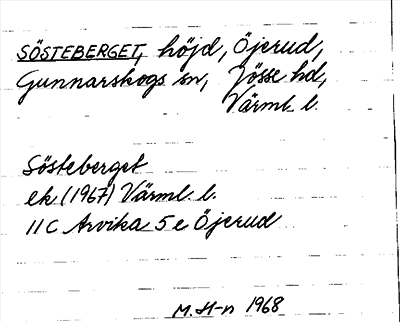 SÖSTEBERGET, höjd, Öjerud,
Gunnarskogs sn, Jösse hd,
Värml. l.
Sösteberget
ek (1967) Värml. l.
11 C Arvika 5 e Öjerud
M. H-n 1968